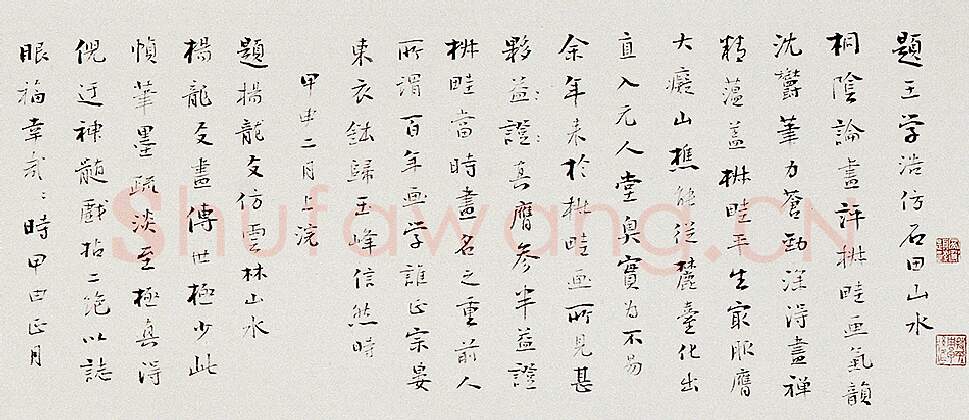 題王学浩仿石田山水
桐陰論畫評椒畦画氣韻
沈欝筆力蒼勁深得畫禅
精蕴蓋椒畦平生最服膺
大癡山樵能從麓臺化出
直入元人堂奥實為不易
余年来於椒畦画所見甚
夥益：證：真膺参半益證
椒畦當時畫名之重前人
所谓百年画学誰正宗晏
東衣鉢歸玉峰信然時
甲申二月上浣
題楊龍友仿雲林山水
楊龍友畫傳世極少此
幀華墨疏淡至極真得
倪迂神髓戲拈二絶以誌
眼福幸哉：時甲申正月
Shufawang.CN